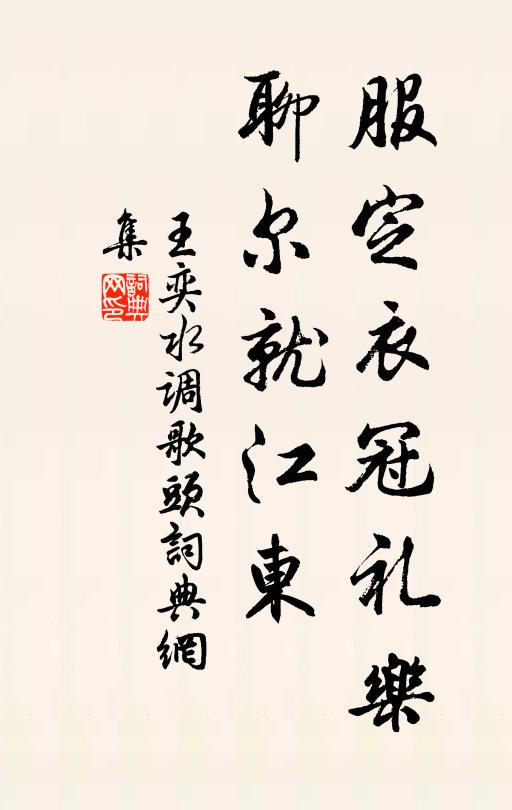 服定衣冠礼樂
聊尔就江東
王奕水调歌頭詞典網
集
詞典
网印